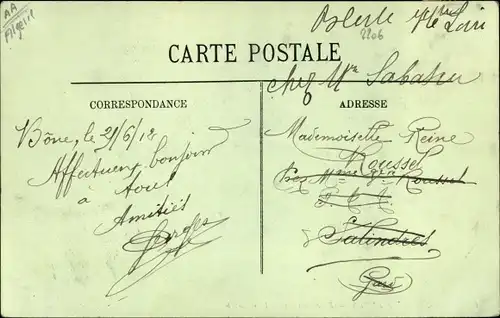 AA
Algérie
Hte Loire
2206
CARTE POSTALE
chez Mr Sabatier
CORRESPONDANCE
ADRESSE
Bône, le 21/6/12
Affectueux bonjour
à tous
Amitiés
Mademoiselle Reine
Roussel
Roussel
à Salindres
Gard